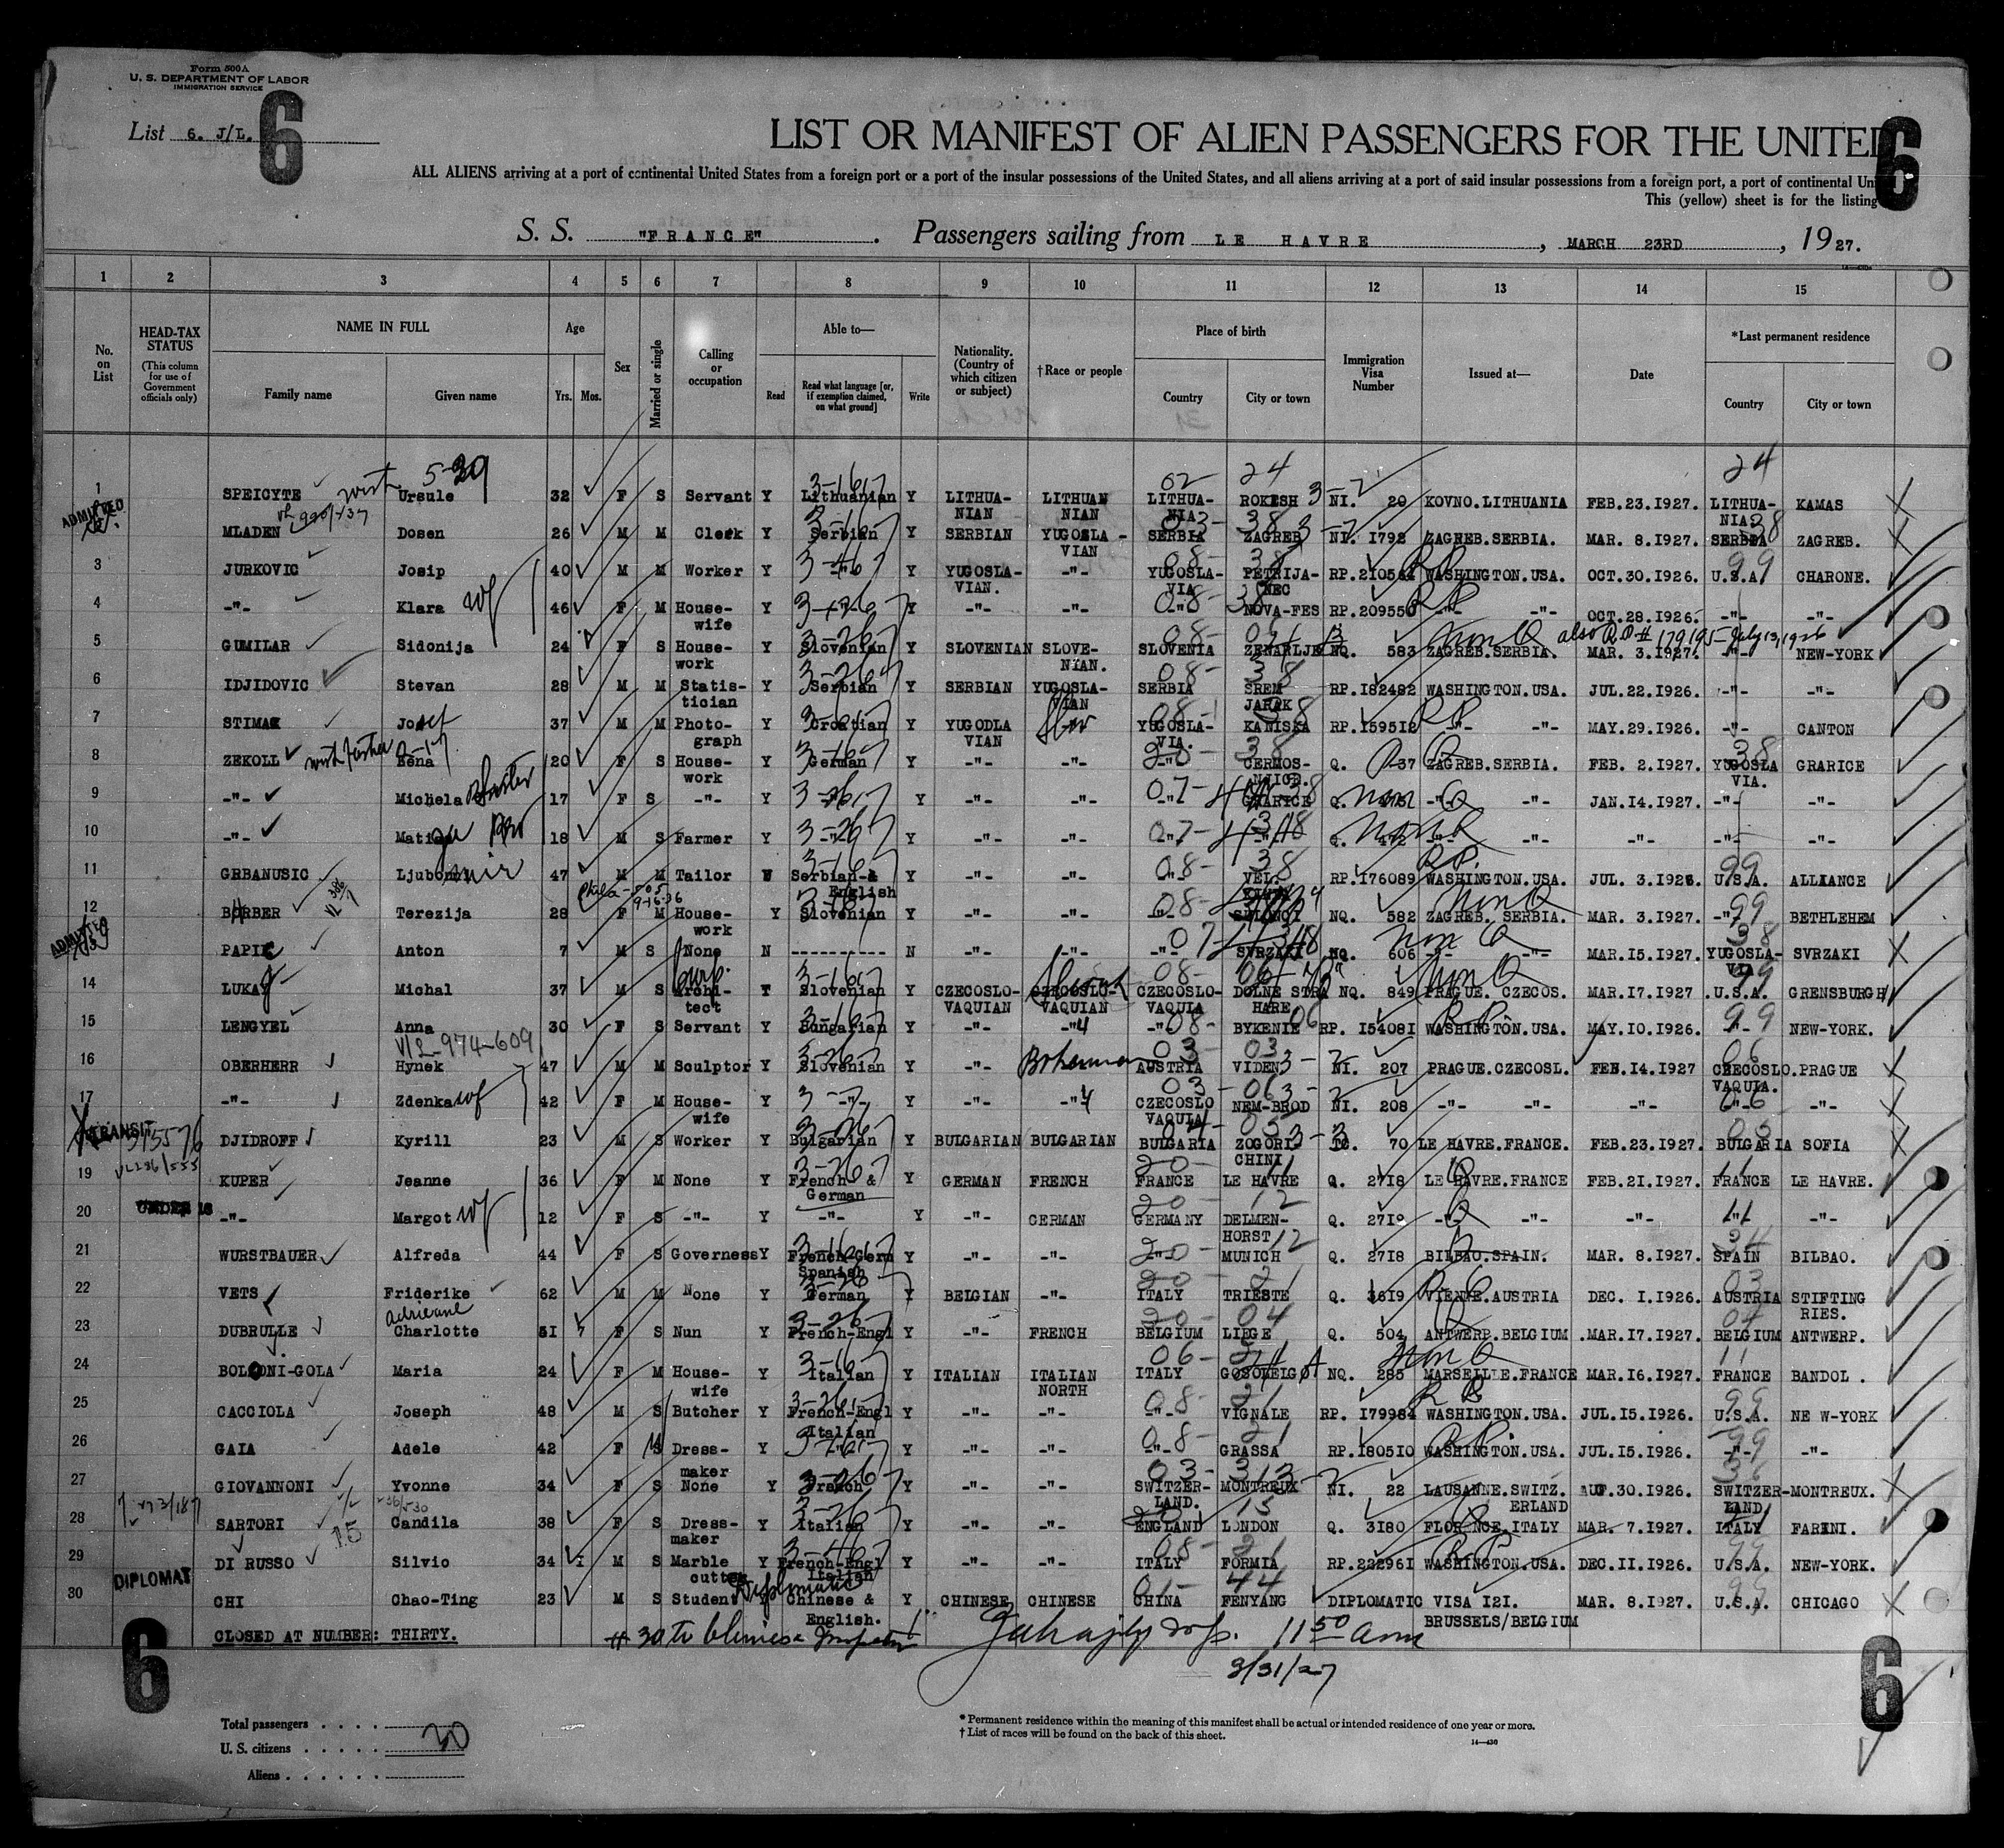 Form 500A
U. S. DEPARTMENT OF LABOR
IMMIGRATION SERVICE
List 6. J/L.
6
6
LIST OR MANIFEST OF ALIEN PASSENGERS FOR THE UNITED
ALL ALIENS arriving at a port of continental United States from a foreign port or a port of the insular possessions of the United States, and all aliens arriving at a port of said insular possessions from a foreign port, a port of continental Uni
This (yellow) sheet is for the listing
S. S. "FRANCE". Passengers sailing from LE HAVRE, MARCH 23RD, 1927.
1 2 3 4 5 6 7 8 9 10 11 12 13 14 15
No. on List
HEAD-TAX STATUS
(This column for use of Government officials only)
NAME IN FULL
Family name
Given name
Age
Yrs. Mos.
Sex
Married or single
Calling or occupation
Able to—
Read
Read what language [or, if exemption claimed, on what ground]
Write
Nationality. (Country of which citizen or subject)
†Race or people
Place of birth
Country
City or town
Immigration Visa Number
Issued at—
Date
*Last permanent residence
Country
City or town
1 SPEICYTE Ursule 32 F S Servant Y Lithuanian Y LITHUA-NIAN LITHUAN NIAN LITHUA-NIA ROKESH NI. 20 KOVNO.LITHUANIA FEB.23.1927. LITHUA-NIA. KAMAS
ADMITTED MLADEN Dosen 26 M M Clerk Y Serbian Y SERBIAN YUGOSLA-VIAN SERBIA ZAGREB NI. 1792 ZAGREB.SERBIA. MAR. 8.1927. SERBIA ZAGREB.
3 JURKOVIC Josip 40 M M Worker Y -"- Y YUGOSLA-VIAN. -"- YUGOSLA-VIA PETRIJA-NEC RP. WASHINGTON.USA. OCT.30.1926. U.S.A. CHARONE.
4 -"- Klara wf 46 F M House-wife Y -"- Y -"- -"- -"- NOVA-FES RP.209550 -"- -"- OCT.28.1926. -"- -"-
5 GUMILAR Sidonija 24 F S House-work Y Slovenian Y SLOVENIAN SLOVE-NIAN. SLOVENIA NQ. 583 Non Q ZAGREB.SERBIA. also R.P.# 179195 July 13, 1926 MAR. 3.1927. -"- NEW-YORK
6 IDJIDOVIC Stevan 28 M M Statis-tician Y Serbian Y SERBIAN YUGOSLA-VIAN SERBIA SREM JARAK RP.182482 WASHINGTON.USA. JUL.22.1926. -"- -"-
7 STIMAC Josef 37 M M Photo-graph Y Croatian Y YUGODLA VIAN YUGOSLA-VIA. KANISKA RP.159512 -"- -"- MAY.29.1926. -"- CANTON
8 ZEKOLL Rena 20 F S House-work Y German Y -"- -"- -"- CERMOS- Q. 37 ZAGREB.SERBIA. FEB. 2.1927. YUGOSLA VIA. GRARICE
9 -"- Michela Sister 17 F S -"- Y -"- Y -"- -"- -"- GRARICE Non Q -"- -"- JAN.14.1927. -"- -"-
10 -"- Bro 18 M S Farmer Y -"- Y -"- -"- -"- -"- Non Q -"- -"- -"- -"- -"-
11 GRBANUSIC Ljubomir 47 M M Tailor Y Serbian-& English Y -"- -"- -"- VEL. RP.176089 WASHINGTON.USA. JUL. 3.1926. U.S.A. ALLIANCE
12 Terezija 28 F M House-work Y Slovenian Y -"- -"- -"- NQ. 582 ZAGREB. SERBIA. MAR. 3.1927. -"- BETHLEHEM
ADMITTED PAPIC Anton 7 M S None N ---------- N -"- -"- -"- SVRZAKI NQ. 606 -"- -"- MAR.15.1927. YUGOSLA-VIA SVRZAKI
14 LUKAJ Michal 37 M S Archi-tect Y Slovenian Y CZECOSLO-VAQUIAN CZECOSLO-VAQUIAN Slovak CZECOSLO-VAQUIA DOLNE STRA HARE NQ. 849 PRAGUE. CZECOS. MAR.17.1927 .U.S.A. GRENSBURGH
15 LENGYEL Anna 30 F S Servant Y Hungarian Y -"- -"- -"- BYKENIE RP. 154081 WASHINGTON.USA. MAY.10.1926. -"- NEW-YORK.
VL-974-609
16 OBERHERR Hynek 47 M M Sculptor Y Slovenian Y -"- Bohemian AUSTRIA VIDEN NI. 207 PRAGUE.CZECOSL. FEB.14.1927 CZECOSLO.VAQUIA. PRAGUE
17 -"- Zdenka wf 42 F M House-wife Y -"- Y -"- -"- CZECOSLO VAQUIA NEM-BROD NI. 208 -"- -"- -"- -"- -"-
TRANSIT DJIDROFF Kyrill 23 M S Worker Y Bulgarian Y BULGARIAN BULGARIAN BULGARIA ZOGORI CHINI TC. 70 LE HAVRE.FRANCE. FEB.23.1927. BULGARIA SOFIA
19 KUPER Jeanne 36 F M None Y French & German Y GERMAN FRENCH FRANCE LE HAVRE Q. 2718 LE HAVRE.FRANCE FEB.21.1927. FRANCE LE HAVRE.
20 UNDER 16 -"- Margot 12 F S -"- Y -"- Y -"- GERMAN GERMANY DELMEN-HORST Q. 2719 -"- -"- -"- -"- -"-
21 WURSTBAUER Alfreda 44 F S Governess Y French-Germ Spanish Y -"- -"- -"- MUNICH Q. 2718 BILBAO.SPAIN. MAR. 8.1927. SPAIN BILBAO.
22 VETS Friderike 62 M M None Y German Y BELGIAN -"- ITALY TRIESTE Q. 3619 VIENNE.AUSTRIA DEC. 1.1926. AUSTRIA STIFTING RIES.
23 DUBRULLE Adrieane Charlotte 51 F S Nun Y French-Engl Y -"- FRENCH BELGIUM LIEGE Q. 504 ANTWERP.BELGIUM .MAR.17.1927. BELGIUM ANTWERP.
24 BOLZONI-GOLA Maria 24 F M House-wife Y Italian Y ITALIAN ITALIAN NORTH ITALY NQ. 285 MARSEILLE.FRANCE MAR.16.1927. FRANCE BANDOL .
25 CACCIOLA Joseph 48 M S Butcher Y French-Engl Italian Y -"- -"- -"- VIGNALE RP. 179984 WASHINGTON.USA. JUL.15.1926. U.S.A. NE W-YORK
26 GAIA Adele 42 F M Dress-maker Y -"- Y -"- -"- -"- GRASSA RP.180510 WASHINGTON.USA. JUL.15.1926. -"- -"-
27 GIOVANNONI Yvonne 34 F S None Y French Y -"- -"- SWITZER-LAND. MONTREUX NI. 22 LAUSANNE.SWITZ.ERLAND AUG.30.1926. SWITZER-LAND MONTREUX.
28 SARTORI Candila 38 F S Dress-maker Y Italian Y -"- -"- ENGLAND LONDON Q. 3180 FLORENCE.ITALY MAR. 7.1927. ITALY FARINI.
29 DI RUSSO Silvio 34 M S Marble cutter Y French-Engl Italian Y -"- -"- ITALY FORMIA RP.222961 WASHINGTON.USA. DEC.11.1926. U.S.A. NEW-YORK.
30 DIPLOMAT CHI Chao-Ting 23 M S Student Diplomatic Y Chinese & English. Y CHINESE CHINESE CHINA FENYANG DIPLOMATIC VISA 121. BRUSSELS/BELGIUM MAR. 8.1927. U.S.A. CHICAGO
CLOSED AT NUMBER: THIRTY.
# 30 to Chinese Inspector
11 50 am
3/31/27
6
6
Total passengers . . . . 30
U. S. citizens . . . . .
Aliens . . . . . .
* Permanent residence within the meaning of this manifest shall be actual or intended residence of one year or more.
† List of races will be found on the back of this sheet.
14—430